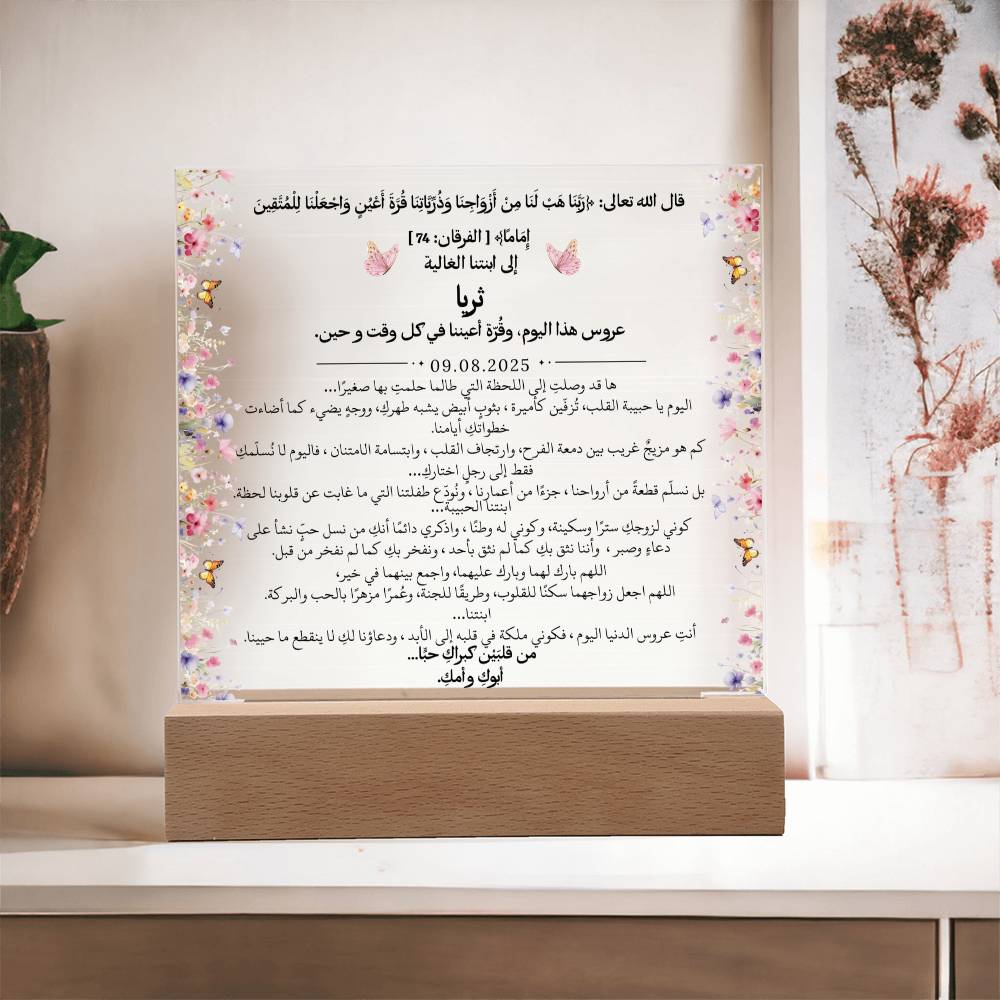 قال الله تعالى: ﴿رَبَّنَا هَبْ لَنَا مِنْ أَزْوَاجِنَا وَذُرِّيَّاتِنَا قُرَّةَ أَعْيُنٍ وَاجْعَلْنَا لِلْمُتَّقِينَ
إِمَامًا﴾ [ الفرقان: 74 ]
إلى ابنتنا الغالية
ثريا
عروس هذا اليوم، وقُرّة أعيننا في كل وقت و حين.
09.08.2025
ها قد وصلتِ إلى اللحظة التي طالما حلمتِ بها صغيرًا...
اليوم يا حبيبة القلب، تُزفّين كأميرة ، بثوبٍ أبيض يشبه طهركِ، ووجهٍ يضيء كما أضاءت
خطواتكِ أيامنا.
كم هو مزيجٌ غريب بين دمعة الفرح، وارتجاف القلب ، وابتسامة الامتنان ، فاليوم لا نُسلّمكِ
فقط إلى رجلٍ اختاركِ...
بل نسلّم قطعةً من أرواحنا ، جزءًا من أعمارنا ، ونُودّع طفلتنا التي ما غابت عن قلوبنا لحظة.
ابنتنا الحبيبة...
كوني لزوجكِ سترًا وسكينة، وكوني له وطنًا ، واذكري دائمًا أنكِ من نسل حبٍّ نشأ على
دعاءٍ وصبر ، وأننا نثق بكِ كما لم نثق بأحد ، ونفخر بكِ كما لم نفخر من قبل.
اللهم بارك لهما وبارك عليهما، واجمع بينهما في خير،
اللهم اجعل زواجهما سكنًا للقلوب، وطريقًا للجنة، وعُمرًا مزهرًا بالحب والبركة.
ابنتنا...
أنتِ عروس الدنيا اليوم ، فكوني ملكة في قلبه إلى الأبد ، ودعاؤنا لكِ لا ينقطع ما حيينا.
من قلبَيْن كبراكِ حبًا...
أبوكِ و أمكِ.